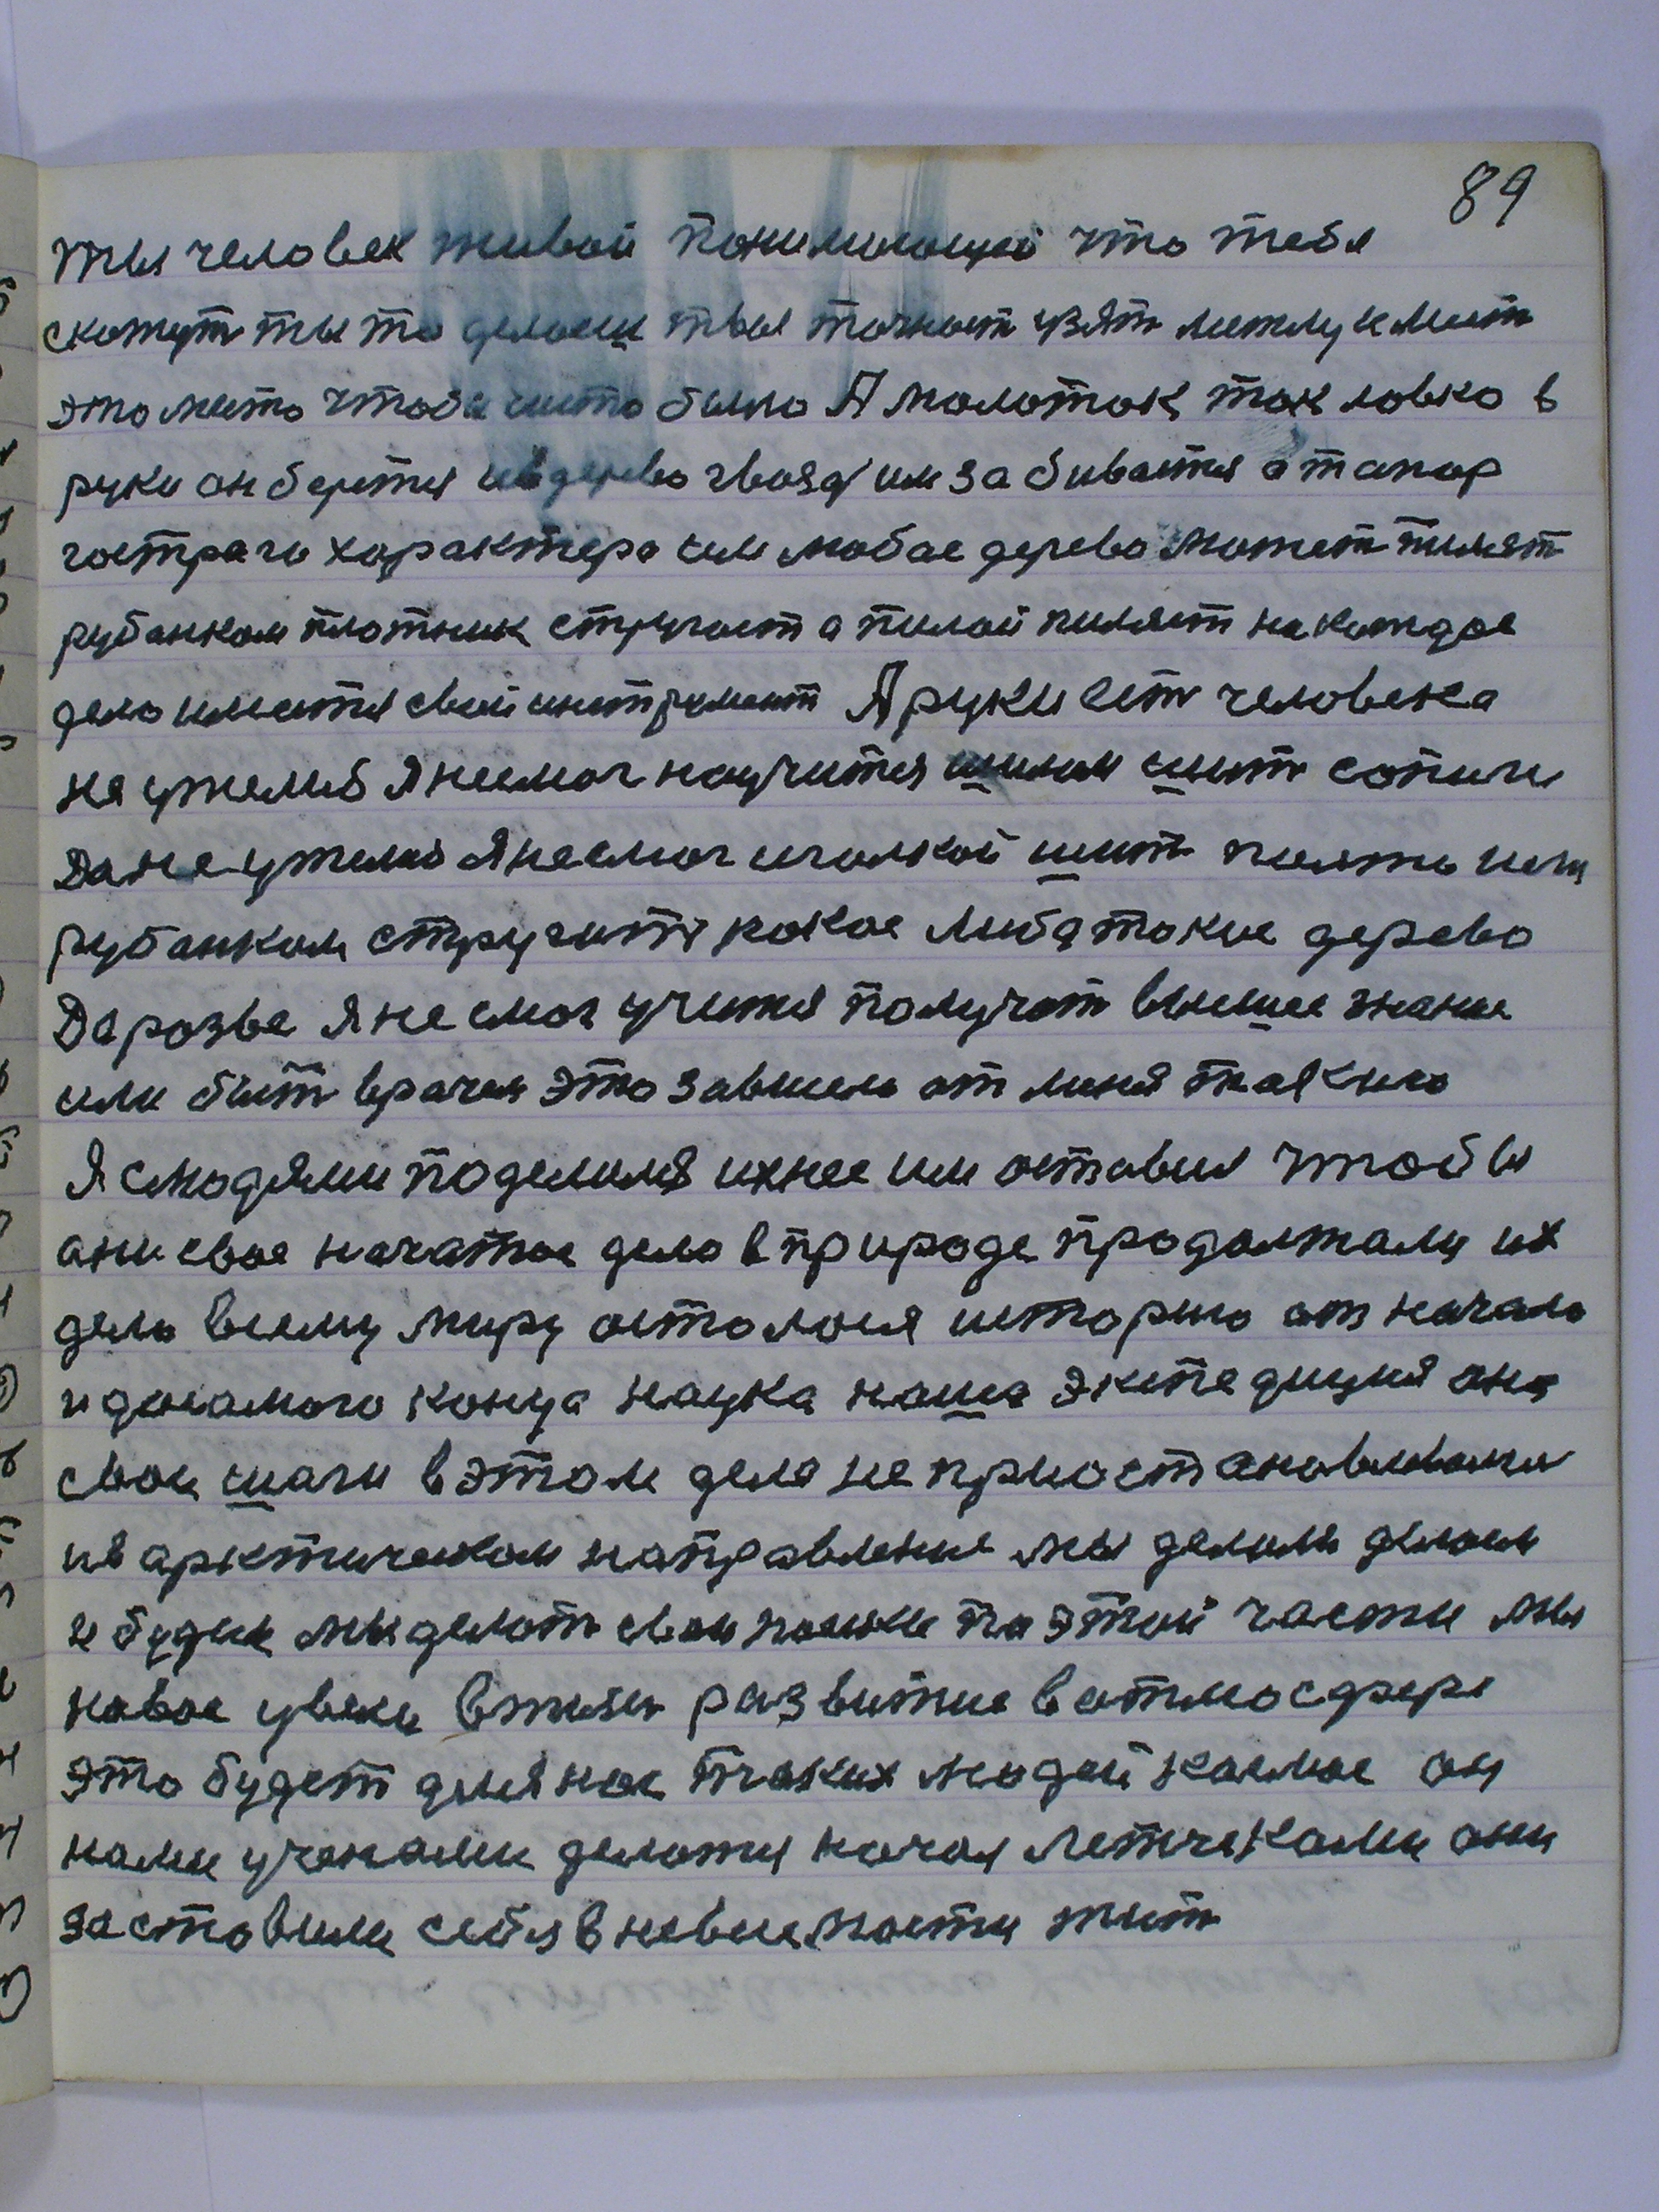 89
ты человек живой понимающей что тебя
скажут ты то делаеш твоя точност узят метлу и мит
это место чтобы чисто было А молоток так ловко в
руки он берется и в дерево гвозд им забивается а тапор
гострого характера им любое дерево может пилят
рубанком плотник стругает а пилой пилят на каждое
дело имеется свой инструмент А руки ест человека
не ужелиб я не смог научится шилом шит сапоги
Да не ужелиб я не смог иголкой шит пилято или
рубанком стругат какое либа такое дерево
Да розве я не смог учится получат высшее знание
или быт врачем это зависило от меня
Я с людями поделился ихнее им оставил чтобы
они свое начатое дело в природе продолжали их
дело всему миру осталося историю от начало
и до самого конца наука наша экспедиция она
свои шаги в этом деле не приостановливали
и в арктическом направление мы делали делаем
и будем мы делат свои поиски по этой части мы
новое увяли в жизн развитие в атмосфере
это будет для нас таких людей космос он
нами учеными делатся начал летчиками они
заставили себя в невесмости жит